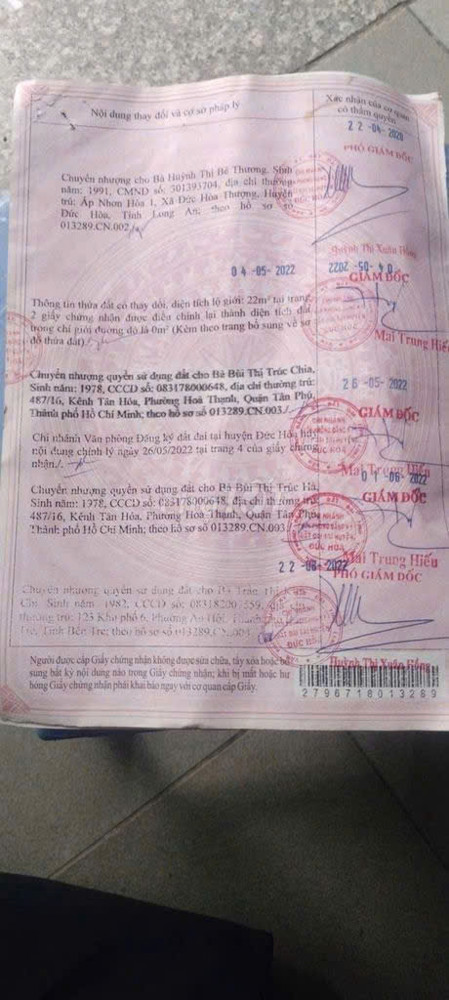 Nội dung thay đổi và cơ sở pháp lý
Xác nhận của cơ quan
có thẩm quyền
22-04-2020
PHÓ GIÁM ĐỐC
Chuyển nhượng cho Bà Huỳnh Thị Bé Thương, Sinh
năm: 1991, CMND số: 301393704, địa chỉ thường
trú: Ấp Nhơn Hòa 1, Xã Đức Hòa Thượng, Huyện
Đức Hòa, Tỉnh Long An; theo hồ sơ số
013289.CN.002
Huỳnh Thị Xuân Hồng
04-05-2022
GIÁM ĐỐC
Thông tin thửa đất có thay đổi, diện tích lộ giới: 22m² tại trang
2 giấy chứng nhận được điều chỉnh lại thành diện tích đất
trong chỉ giới đường đỏ là 0m² (Kèm theo trang bổ sung về sơ
đồ thửa đất)
Mai Trung Hiếu
Chuyển nhượng quyền sử dụng đất cho Bà Bùi Thị Trúc Chia,
Sinh năm: 1978, CCCD số: 083178000648, địa chỉ thường trú:
487/16, Kênh Tân Hóa, Phường Hoà Thạnh, Quận Tân Phú,
Thành phố Hồ Chí Minh; theo hồ sơ số 013289.CN.003
26-05-2022
GIÁM ĐỐC
Chi nhánh Văn phòng Đăng ký đất đai tại huyện Đức Hòa hủy
nội dung chỉnh lý ngày 26/05/2022 tại trang 4 của giấy chứng
nhận
Mai Trung Hiếu
01-06-2022
GIÁM ĐỐC
Chuyển nhượng quyền sử dụng đất cho Bà Bùi Thị Trúc Hà,
Sinh năm: 1978, CCCD số: 083178009648, địa chỉ thường trú:
487/16, Kênh Tân Hóa, Phường Hoà Thạnh, Quận Tân Phú,
Thành phố Hồ Chí Minh; theo hồ sơ số 013289.CN.003
ĐỨC HÒA
Mai Trung Hiếu
22-08-2022
PHÓ GIÁM ĐỐC
Chuyển nhượng quyền sử dụng đất cho Bà Trần Thị
Chi, Sinh năm: 1982, CCCD số:
thường trú: 123 Khu phố 6, Phường An Hội, Thành phố Bến
Tre, Tỉnh Bến Tre; theo hồ sơ số 013289.CN.004
Huỳnh Thị Xuân Hồng
Người được cấp Giấy chứng nhận không được sửa chữa, tẩy xóa hoặc bổ
sung bất kỳ nội dung nào trong Giấy chứng nhận; khi bị mất hoặc hư
hỏng Giấy chứng nhận phải khai báo ngay với cơ quan cấp Giấy.
2796718013289